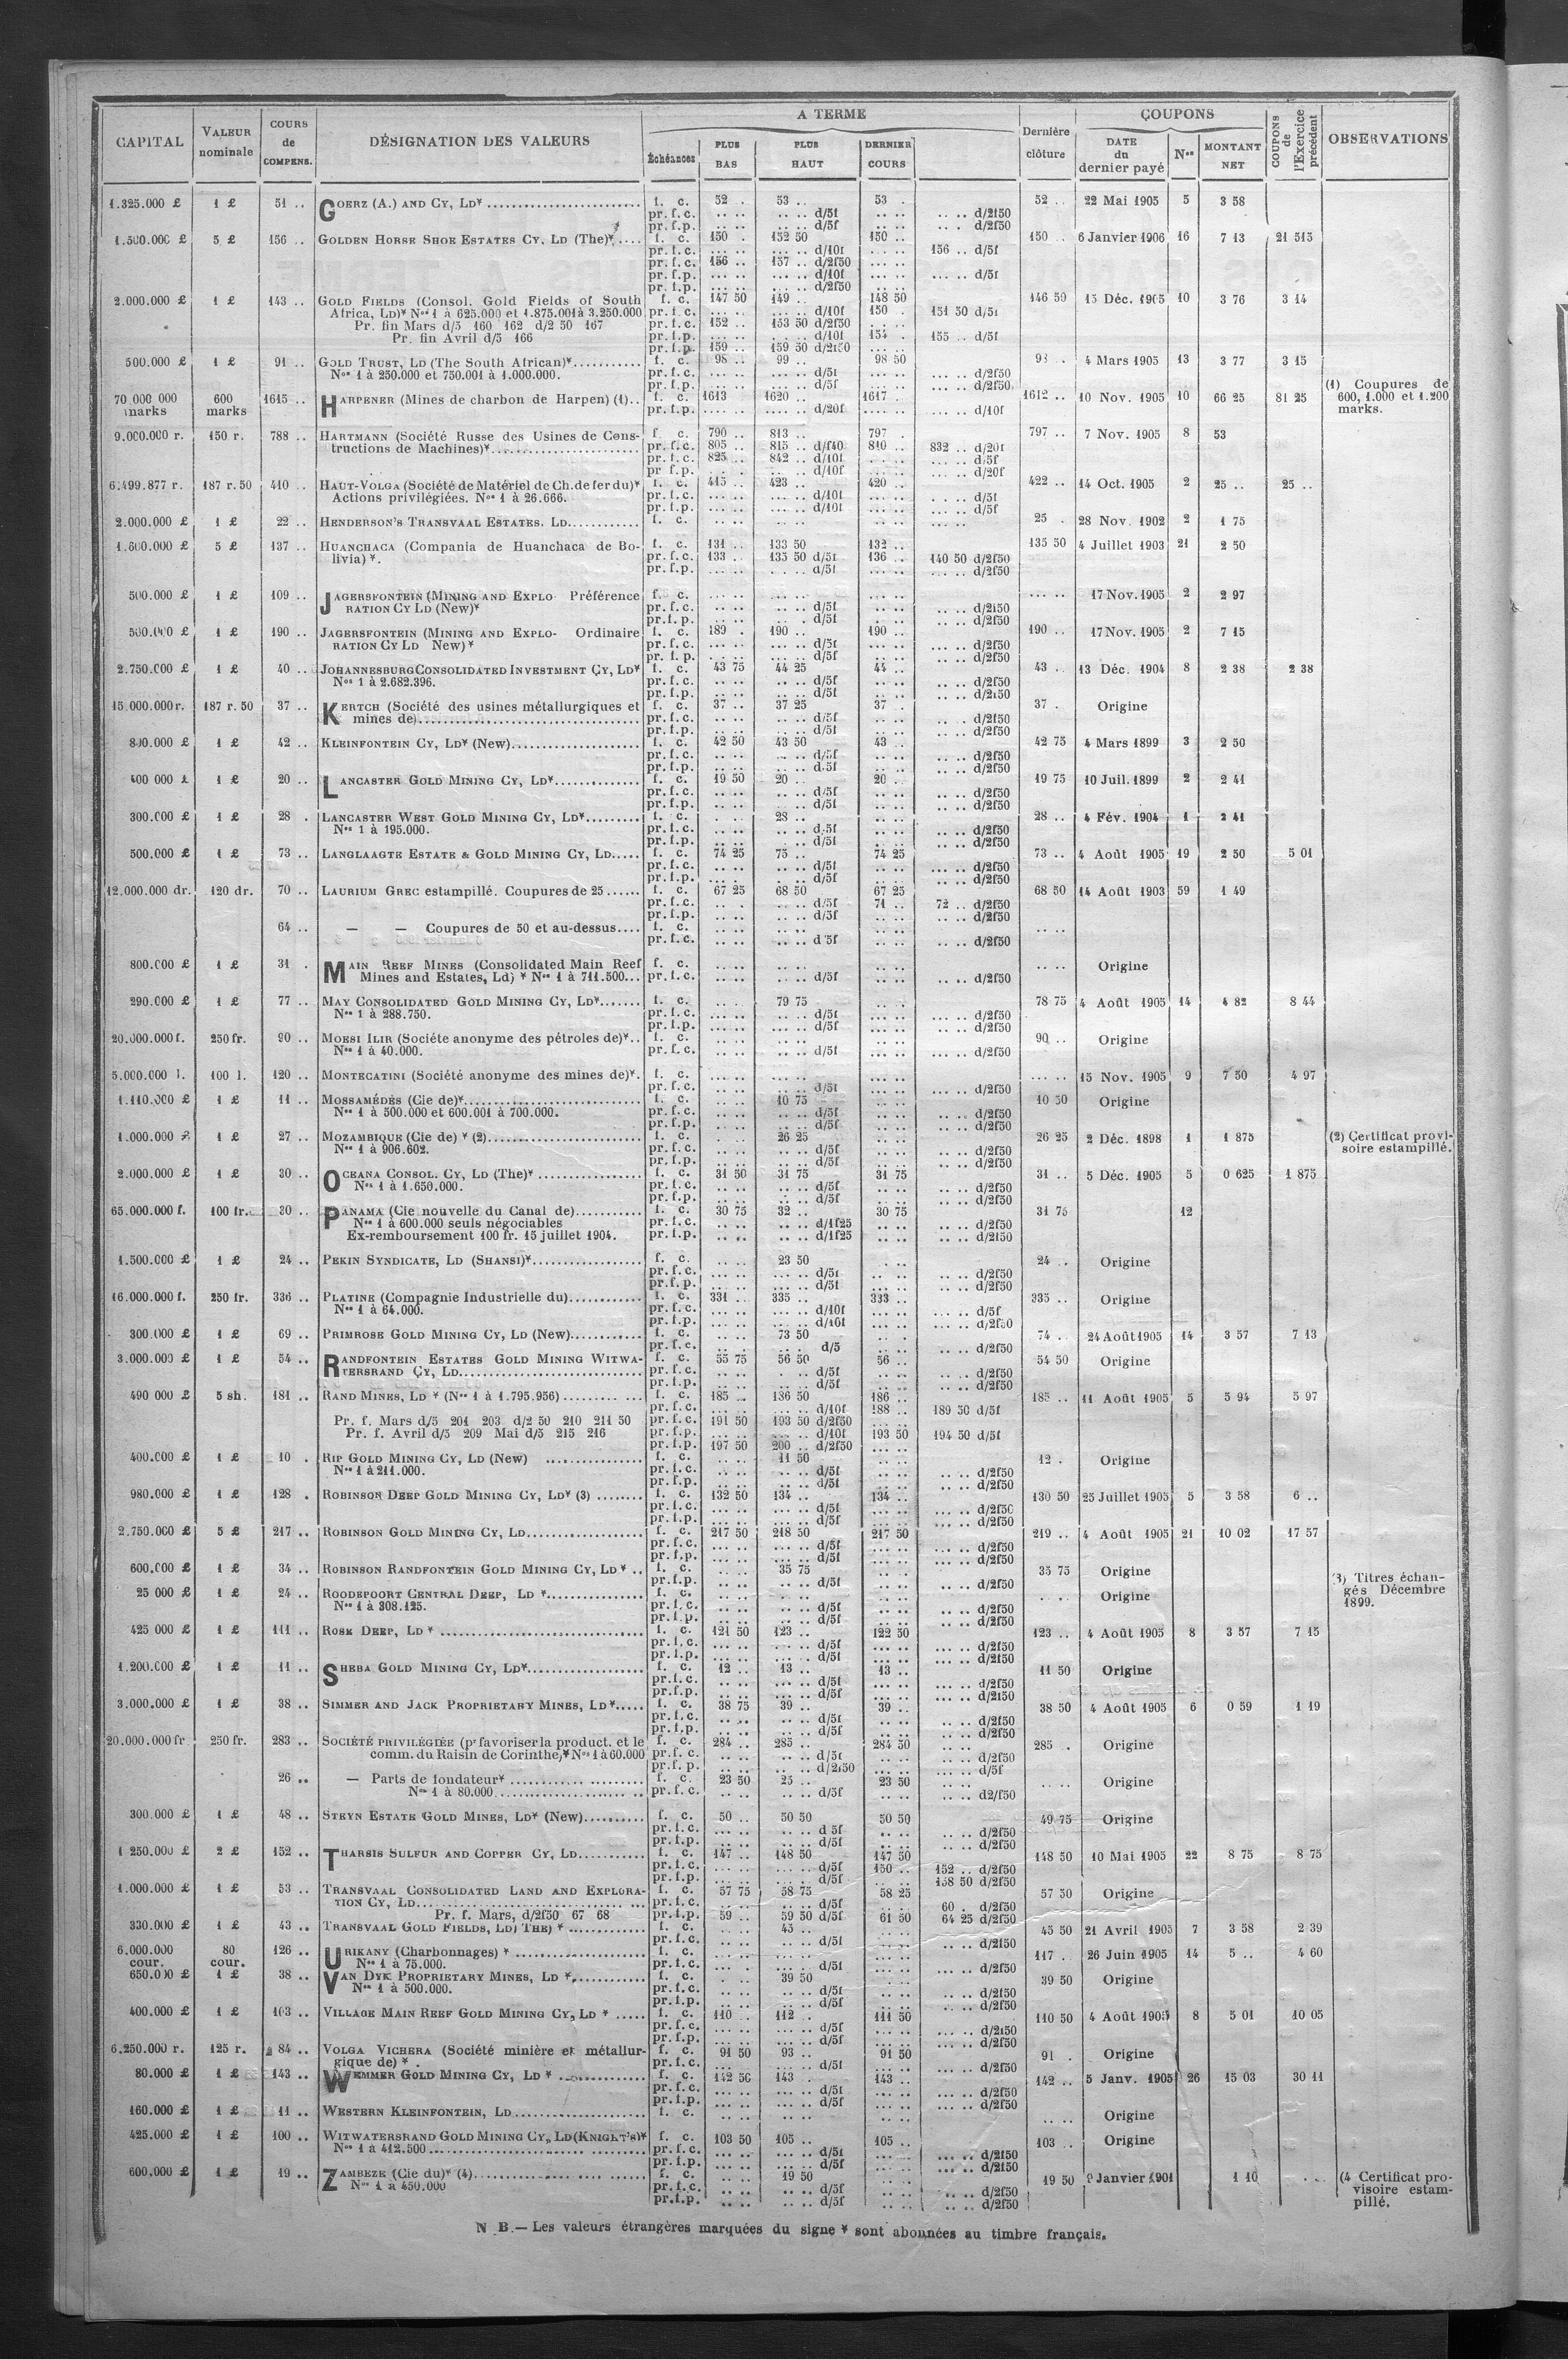 A TERME
COUPONS
CAPITAL
VALEUR nominale
COURS de COMPENS.
DÉSIGNATION DES VALEURS
Échéances
PLUS BAS
PLUS HAUT
DERNIER COURS
Dernière clôture
DATE du dernier payé
Nos
MONTANT NET
COUPONS de l'Exercice précédent
OBSERVATIONS
1.325.000 £ 1 £ 51 .. GOERZ (A.) AND CY, LD* f. c. 52 . 53 .. 53 . 52 .. 22 Mai 1905 5 3 58
pr. f. c. .. .. .. .. d/5f .. .. .. .. d/2f50
pr. f.p. .. .. .. .. d/5f .. .. . d/2f50
1.500.000 £ 5 £ 156 .. GOLDEN HORSE SHOE ESTATES CY, LD (The)* f. c. 150 . 152 50 150 .. 150 .. 6 Janvier 1906 16 7 13 21 515
pr. f.c. ... .. ... .. d/10f ... .. 156 .. d/5f
pr. f.c. 156 .. 157 .. d/2f50 ... ..
pr. f.p. ... .. ... .. d/10f ... .. ... .. d/5f
pr. f.p. ... .. ... .. d/2f50
2.000.000 £ 1 £ 143 .. GOLD FIELDS (Consol. Gold Fields of South f. c. 147 50 149 .. 148 50 146 50 15 Déc. 1905 10 3 76 3 14
Africa, LD)* Nos 1 à 625.000 et 1.875.001 à 3.250.000 pr. f.c. ... .. ... .. d/10f 150 . 151 50 d/5f
Pr. fin Mars d/5 160 162 d/2 50 167 pr. f.c. 152 .. 153 50 d/2f50
Pr. fin Avril d/5 166 pr. f.p. ... .. ... .. d/10f 154 . 155 .. d/5f
pr. f.p. 159 .. 159 50 d/2f50
500.000 £ 1 £ 91 .. GOLD TRUST, LD (The South African)* f. c. 98 .. 99 .. 98 50 4 Mars 1905 13 3 77 3 15
Nos 1 à 250.000 et 750.001 à 1.000.000. pr. f.c. ... .. d/5f ... .. d/2f50
pr. f.p. ... .. d/5f ... .. d/2f50
70 000 000 marks 600 marks 1615 .. HARPENER (Mines de charbon de Harpen) (1) f. c. 1613 1620 .. 1617 . 1612 .. 10 Nov. 1905 10 66 25 81 25
pr. f.p. .... .. d/20f .... .. d/10f
(1) Coupures de
600, 1.000 et 1.200
marks.
9.000.000 r. 150 r. 788 .. HARTMANN (Société Russe des Usines de Cons- f. c. 790 .. 813 .. 797 . 797 .. 7 Nov. 1905 8 53
tructions de Machines)* pr. f.c. 805 .. 815 .. d/f40 810 .. 832 .. d/20f
pr. f.c. 825 .. 842 .. d/10f ... .. d/5f
pr f.p. d/10f d/20f
6.499.877 r. 187 r. 50 410 .. HAUT-VOLGA (Société de Matériel de Ch. de fer du)* f. c. 415 .. 423 .. 420 .. 422 .. 14 Oct. 1905 2 25 .. 25 ..
Actions privilégiées. Nos 1 à 26.666. pr. f.c. ... .. d/10f ... .. d/5f
pr. f.p. ... .. d/10f ... .. d/5f
2.000.000 £ 1 £ 22 .. HENDERSON'S TRANSVAAL ESTATES. LD f. c. .. .. .. .. .. .. 25 . 28 Nov. 1902 2 1 75
1.600.000 £ 5 £ 137 .. HUANCHACA (Compania de Huanchaca de Bo- f. c. 131 .. 133 50 132 .. 135 50 4 Juillet 1903 21 2 50
livia) *. pr. f.c. 133 .. 135 50 d/5f 136 .. 140 50 d/2f50
pr. f.p. ... .. d/5f ... .. d/2f50
500.000 £ 1 £ 109 .. JAGERSFONTEIN (MINING AND EXPLO- Préférence f. c. ... .. 17 Nov. 1905 2 2 97
RATION CY LD (New)* pr. f.c. .. .. d/5f .. .. d/2f50
pr. f.p. .. .. d/5f .. .. d/2f50
500.000 £ 1 £ 190 .. JAGERSFONTEIN (MINING AND EXPLO- Ordinaire f. c. 189 . 190 .. 190 .. 190 .. 17 Nov. 1905 2 7 15
RATION CY LD New)* pr. f.c. ... .. d/5f .. .. d/2f50
pr. f. p. ... .. d/5f .. .. d/2f50
2.750.000 £ 1 £ 40 .. JOHANNESBURG CONSOLIDATED INVESTMENT CY, LD* f. c. 43 75 44 25 44 .. 43 .. 13 Déc. 1904 8 2 38 2 38
Nos 1 à 2.682.396. pr. f.c. .. .. d/5f .. .. d/2f50
pr. f.p. .. .. d/5f .. .. d/2f50
15.000.000 r. 187 r. 50 37 .. KERTCH (Société des usines métallurgiques et f. c. 37 .. 37 25 37 . 37 . Origine
mines de) pr. f.c. .. .. d/5f .. .. d/2f50
pr. f.p. .. .. d/5f .. .. d/2f50
800.000 £ 1 £ 42 .. KLEINFONTEIN CY, LD* (New) f. c. 42 50 43 50 43 .. 42 75 4 Mars 1899 3 2 50
pr. f.c. .. .. d/5f .. .. d/2f50
pr. f.p. .. .. d/5f .. .. d/2f50
400 000 £ 1 £ 20 .. LANCASTER GOLD MINING CY, LD* f. c. 19 50 20 .. 20 .. 19 75 10 Juil. 1899 2 2 41
pr. f.c. .. .. d/5f .. .. d/2f50
pr. f.p. .. .. d/5f .. .. d/2f50
300.000 £ 1 £ 28 . LANCASTER WEST GOLD MINING CY, LD* f. c. 28 .. 28 .. 4 Fév. 1904 1 2 41
Nos 1 à 195.000. pr. f.c. .. .. d/5f .. .. d/2f50
pr. f.p. .. .. d/5f .. .. d/2f50
500.000 £ 1 £ 73 .. LANGLAAGTE ESTATE & GOLD MINING CY, LD f. c. 74 25 75 .. 74 25 73 .. 4 Août 1905 19 2 50 5 01
pr. f.c. ... .. d/5f ... .. d/2f50
pr. f.p. ... .. d/5f .. .. d/2f50
12.000.000 dr. 120 dr. 70 .. LAURIUM GREC estampillé. Coupures de 25 f. c. 67 25 68 50 67 25 68 50 14 Août 1903 59 1 49
pr. f.c. .. .. d/5f 71 .. 72 .. d/2f50
pr. f.p. .. .. d/5f .. .. d/2f50
64 .. — — Coupures de 50 et au-dessus f. c. .. .. .. ..
pr. f.c. .. .. d/5f .. .. d/2f50
800.000 £ 1 £ 31 . MAIN REEF MINES (Consolidated Main Reef f. c. .. .. Origine
Mines and Estates, Ld) * Nos 1 à 711.500 pr. f.c. .. .. d/5f .. .. d/2f50
290.000 £ 1 £ 77 .. MAY CONSOLIDATED GOLD MINING CY, LD* f. c. 79 75 78 75 4 Août 1905 14 4 82 8 44
Nos 1 à 288.750. pr. f.c. .. .. d/5f .. .. d/2f50
pr. f.p. .. .. d/5f .. .. d/2f50
20.000.000 f. 250 fr. 90 .. MOESI ILIR (Sociéte anonyme des pétroles de)* f. c. .. .. 90 .. Origine
Nos 1 à 40.000. pr. f.c. .. .. d/5f .. .. d/2f50
5.000.000 l. 100 l. 120 .. MONTECATINI (Société anonyme des mines de)*. f. c. ... .. 15 Nov. 1905 9 7 50 4 97
pr. f.c. ... .. d/5f ... .. d/2f50
1.110.000 £ 1 £ 11 .. MOSSAMÉDÈS (Cie de)* f. c. 10 75 10 50 Origine
Nos 1 à 500.000 et 600.001 à 700.000. pr. f.c. .. .. d/5f .. .. d/2f50
pr. f.p. .. .. d/5f .. .. d/2f50
1.000.000 £ 1 £ 27 .. MOZAMBIQUE (Cie de) * (2) f. c. 26 25 26 25 2 Déc. 1898 1 1 875
Nos 1 à 906.602. pr. f.c. .. .. d/5f .. .. d/2f50
pr. f.p. .. .. d/5f .. .. d/2f50
(2) Certificat provi-
soire estampillé.
2.000.000 £ 1 £ 30 .. OCEANA CONSOL. CY, LD (The)* f. c. 31 50 31 75 31 75 31 .. 5 Déc. 1905 5 0 625 1 875
Nos 1 à 1.650.000. pr. f.c. .. .. d/5f .. .. d/2f50
pr. f.p. .. .. d/5f .. .. d/2f50
65.000.000 f. 100 fr. 30 .. PANAMA (Cie nouvelle du Canal de) f. c. 30 75 32 .. 30 75 31 75 12
Nos 1 à 600.000 seuls négociables pr. f.c. .. .. d/1f25 .. .. d/2f50
Ex-remboursement 100 fr. 15 juillet 1904. pr. f.p. .. .. d/1f25 .. .. d/2f50
1.500.000 £ 1 £ 24 .. PEKIN SYNDICATE, LD (SHANSI)* f. c. 23 50 24 .. Origine
pr. f.c. .. .. d/5f .. .. d/2f50
pr. f.p. .. .. d/5f .. .. d/2f50
16.000.000 f. 250 fr. 336 .. PLATINE (Compagnie Industrielle du) f. c. 331 .. 335 .. 333 .. 335 .. Origine
Nos 1 à 64.000. pr. f.c. ... .. d/10f ... .. d/5f
pr. f.p. ... .. d/10f ... .. d/2f50
300.000 £ 1 £ 69 .. PRIMROSE GOLD MINING CY, LD (New) f. c. 73 50 74 .. 24 Août 1905 14 3 57 7 13
pr. f.c. .. .. d/5 .. .. d/2f50
3.000.000 £ 1 £ 54 .. RANDFONTEIN ESTATES GOLD MINING WITWA- f. c. 55 75 56 50 56 .. 54 50 Origine
TERSRAND CY, LD pr. f.c. .. .. d/5f .. .. d/2f50
pr. f.p. .. .. d/5f .. .. d/2f50
490 000 £ 5 sh. 181 .. RAND MINES, LD * (Nos 1 à 1.795.956) f. c. 185 .. 186 50 186 .. 185 .. 11 Août 1905 5 5 94 5 97
pr. f.c. ... .. d/10f 188 .. 189 50 d/5f
Pr. f. Mars d/5 201 203 d/2 50 210 211 50 pr. f.c. 191 50 193 50 d/2f50
Pr. f. Avril d/5 209 Mai d/5 215 216 pr. f.p. ... .. d/10f 193 50 194 50 d/5f
pr. f.p. 197 50 200 .. d/2f50
400.000 £ 1 £ 10 . RIP GOLD MINING CY, LD (New) f. c. 11 50 12 . Origine
Nos 1 à 211.000. pr. f.c. .. .. d/5f .. .. d/2f50
pr. f.p. .. .. d/5f .. .. d/2f50
980.000 £ 1 £ 128 . ROBINSON DEEP GOLD MINING CY, LD* (3) f. c. 132 50 134 .. 134 .. 130 50 25 Juillet 1905 5 3 58 6 ..
pr. f.c. ... .. d/5f ... .. d/2f50
pr. f.p. ... .. d/5f ... .. d/2f50
2.750.000 £ 5 £ 217 .. ROBINSON GOLD MINING CY, LD f. c. 217 50 218 50 217 50 219 .. 4 Août 1905 21 10 02 17 57
pr. f.c. ... .. d/5f ... .. d/2f50
pr. f.p. ... .. d/5f ... .. d/2f50
600.000 £ 1 £ 34 .. ROBINSON RANDFONTEIN GOLD MINING CY, LD * f. c. 35 75 35 75 Origine
pr. f.p. .. .. d/5f .. .. d/2f50
25 000 £ 1 £ 24 .. ROODEPOORT CENTRAL DEEP, LD * f. c. .. .. Origine
Nos 1 à 308.125. pr. f.c. .. .. d/5f .. .. d/2f50
pr. f.p. .. .. d/5f .. .. d/2f50
(3) Titres échan-
gés Décembre
1899.
425 000 £ 1 £ 111 .. ROSE DEEP, LD * f. c. 121 50 123 .. 122 50 123 .. 4 Août 1905 8 3 57 7 15
pr. f.c. ... .. d/5f ... .. d/2f50
pr. f.p. ... .. d/5f ... .. d/2f50
1.200.000 £ 1 £ 11 .. SHEBA GOLD MINING CY, LD* f. c. 12 .. 13 .. 13 .. 11 50 Origine
pr. f.c. .. .. d/5f .. .. d/2f50
pr. f.p. .. .. d/5f .. .. d/2f50
3.000.000 £ 1 £ 38 .. SIMMER AND JACK PROPRIETARY MINES, LD* f. c. 38 75 39 .. 39 .. 38 50 4 Août 1905 6 0 59 1 19
pr. f.c. .. .. d/5f .. .. d/2f50
pr. f.p. .. .. d/5f .. .. d/2f50
20.000.000 fr 250 fr. 283 .. SOCIÉTÉ PRIVILÉGIÉE (pr favoriser la product. et le f. c. 284 .. 285 .. 284 50 285 . Origine
comm. du Raisin de Corinthe)* Nos 1 à 60.000 pr. f. c. .. .. d/5f .. .. d/2f50
pr. f. p. .. .. d/2f50 .. .. d/5f
26 .. — Parts de fondateur* f. c. 23 50 25 .. 23 50 .. .. Origine
Nos 1 à 80.000 pr. f.c. .. .. d/5f .. .. d2/f50
300.000 £ 1 £ 48 .. STEYN ESTATE GOLD MINES, LD* (New) f. c. 50 .. 50 50 50 50 49 75 Origine
pr. f.c. .. .. d 5f .. .. d/2f50
pr. f.p. .. .. d/5f .. .. d/2f50
1 250.000 £ 2 £ 152 .. THARSIS SULFUR AND COPPER CY, LD f. c. 147 .. 148 50 147 50 148 50 10 Mai 1905 22 8 75 8 75
pr. f.c. ... .. d/5f 150 .. 152 .. d/2f50
pr. f.p. ... .. d/5f 158 50 d/2f50
1.000.000 £ 1 £ 53 .. TRANSVAAL CONSOLIDATED LAND AND EXPLORA- f. c. 57 75 58 75 58 25 57 50 Origine
TION CY, LD pr. f.c. .. .. d/5f .. .. 60 . d/2f50
Pr. f. Mars, d/2f50 67 68 pr. f.p. 59 .. 59 50 d/5f 61 50 64 25 d/2f50
330.000 £ 1 £ 43 .. TRANSVAAL GOLD FIELDS, LD) THE) * f. c. 45 .. 45 50 21 Avril 1905 7 3 58 2 39
pr. f.c. .. .. d/5f .. .. d/2f50
6.000.000 cour. 80 cour. 126 .. URIKANY (Charbonnages) * f. c. ... .. 117 . 26 Juin 1905 14 5 .. 4 60
Nos 1 à 75.000. pr. f.c. ... .. d/5f ... .. d/2f50
650.000 £ 1 £ 38 .. VAN DYK PROPRIETARY MINES, LD * f. c. 39 50 39 50 Origine
Nos 1 à 500.000. pr. f.c. .. .. d/5f .. .. d/2f50
pr. f.p. .. .. d/5f .. .. d/2f50
400.000 £ 1 £ 103 .. VILLAGE MAIN REEF GOLD MINING CY, LD * f. c. 110 .. 112 .. 111 50 110 50 4 Août 1905 8 5 01 10 05
pr. f.c. ... .. d/5f ... .. d/2f50
pr. f.p. ... .. d/5f ... .. d/2f50
6.250.000 r. 125 r. 84 .. VOLGA VICHERA (Société minière et métallur- f. c. 91 50 93 .. 91 50 91 . Origine
gique de) * . pr. f.c. .. .. d/5f .. .. d/2f50
80.000 £ 1 £ 143 .. WEMMER GOLD MINING CY, LD * f. c. 142 50 143 . 143 .. 142 .. 5 Janv. 1905 26 15 03 30 11
pr. f.c. ... .. d/5f ... .. d/2f50
pr. f.p. ... .. d/5f ... .. d/2f50
160.000 £ 1 £ 11 .. WESTERN KLEINFONTEIN, LD f. c. .. .. .. .. Origine
425.000 £ 1 £ 100 .. WITWATERSRAND GOLD MINING CY, LD (KNIGHT'S)* f. c. 103 50 105 .. 105 .. 103 .. Origine
Nos 1 à 412.500 pr. f.c. ... .. d/5f ... .. d/2f50
pr. f.p. ... .. d/5f ... .. d/2f50
600.000 £ 1 £ 19 .. ZAMBEZE (Cie du)* (4) f. c. 19 50 19 50 9 Janvier 1901 1 10
Nos 1 à 450.000 pr. f.c. .. .. d/5f .. .. d/2f50
pr. f.p. .. .. d/5f .. .. d/2f50
(4 Certificat pro-
visoire estam-
pillé.
N B.— Les valeurs étrangères marquées du signe * sont abonnées au timbre français.